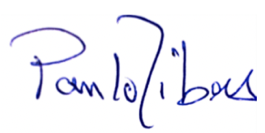 Paulo Ribas